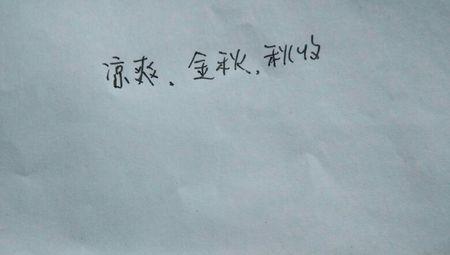 凉爽、金秋、秋收